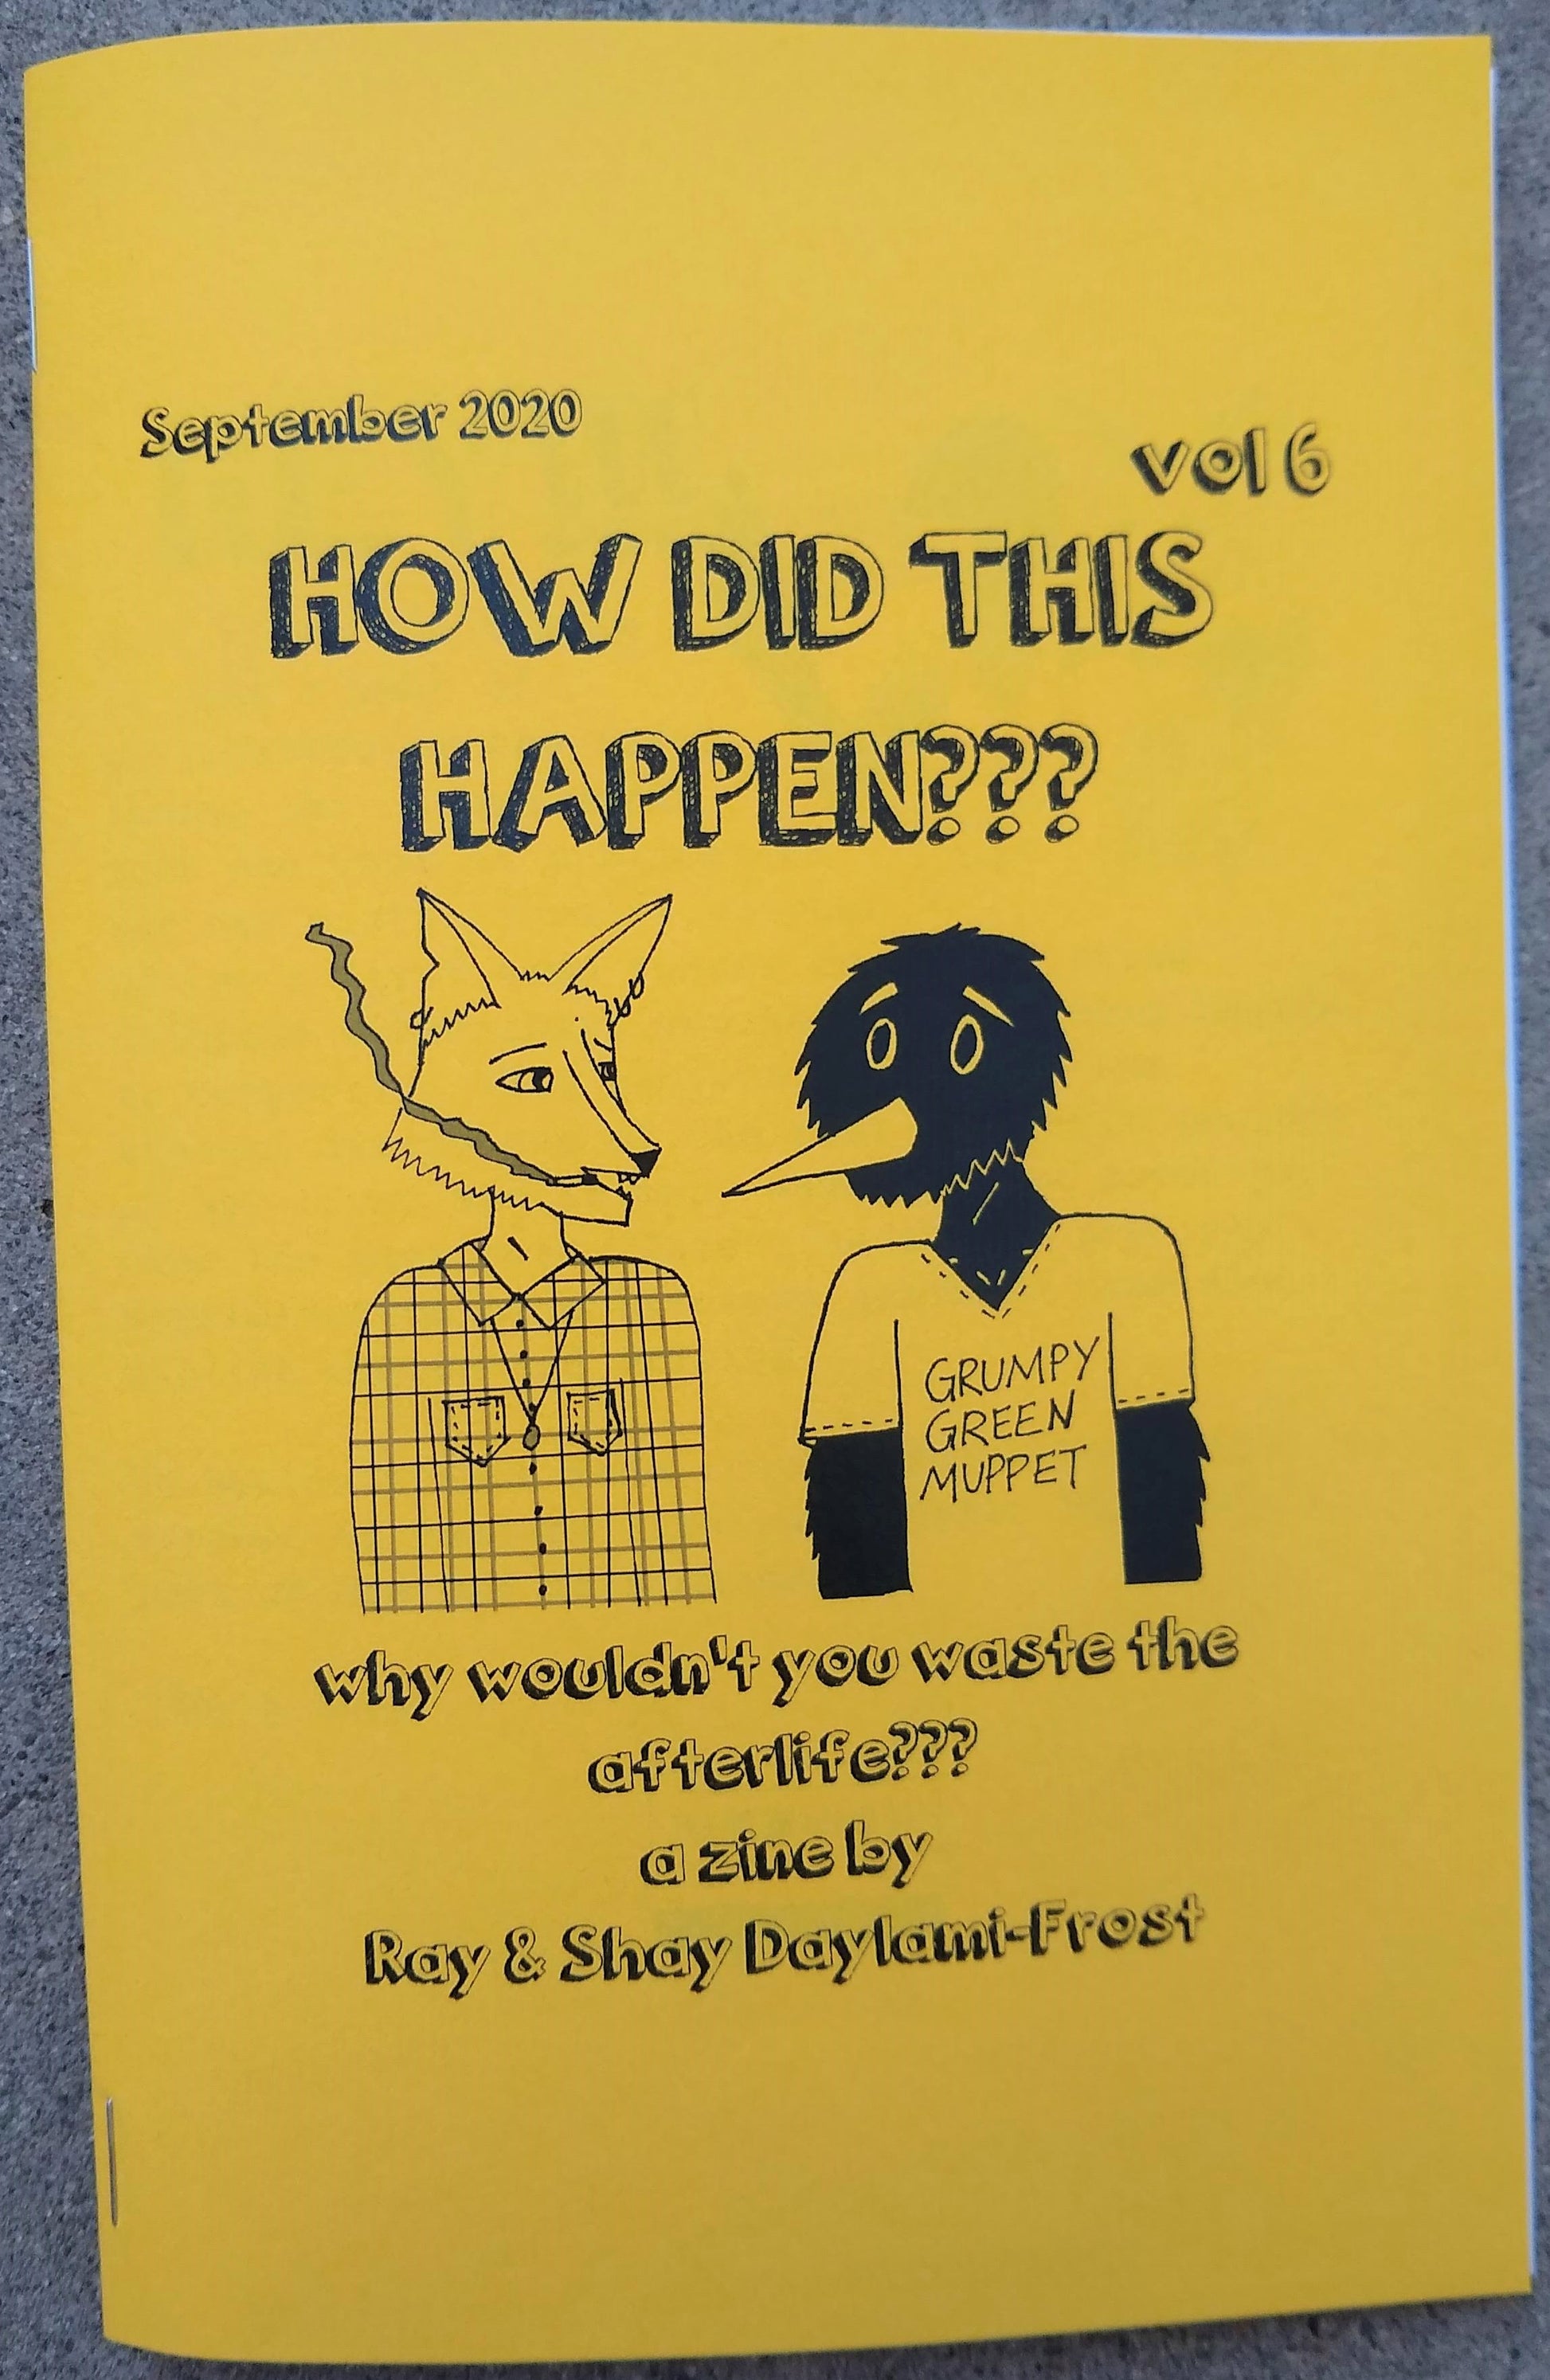 September 2020
vol 6
HOW DID THIS
HAPPEN???
GRUMPY
GREEN
MUPPET
why wouldn't you waste the
afterlife???
a zine by
Ray & Shay Daylami-Frost